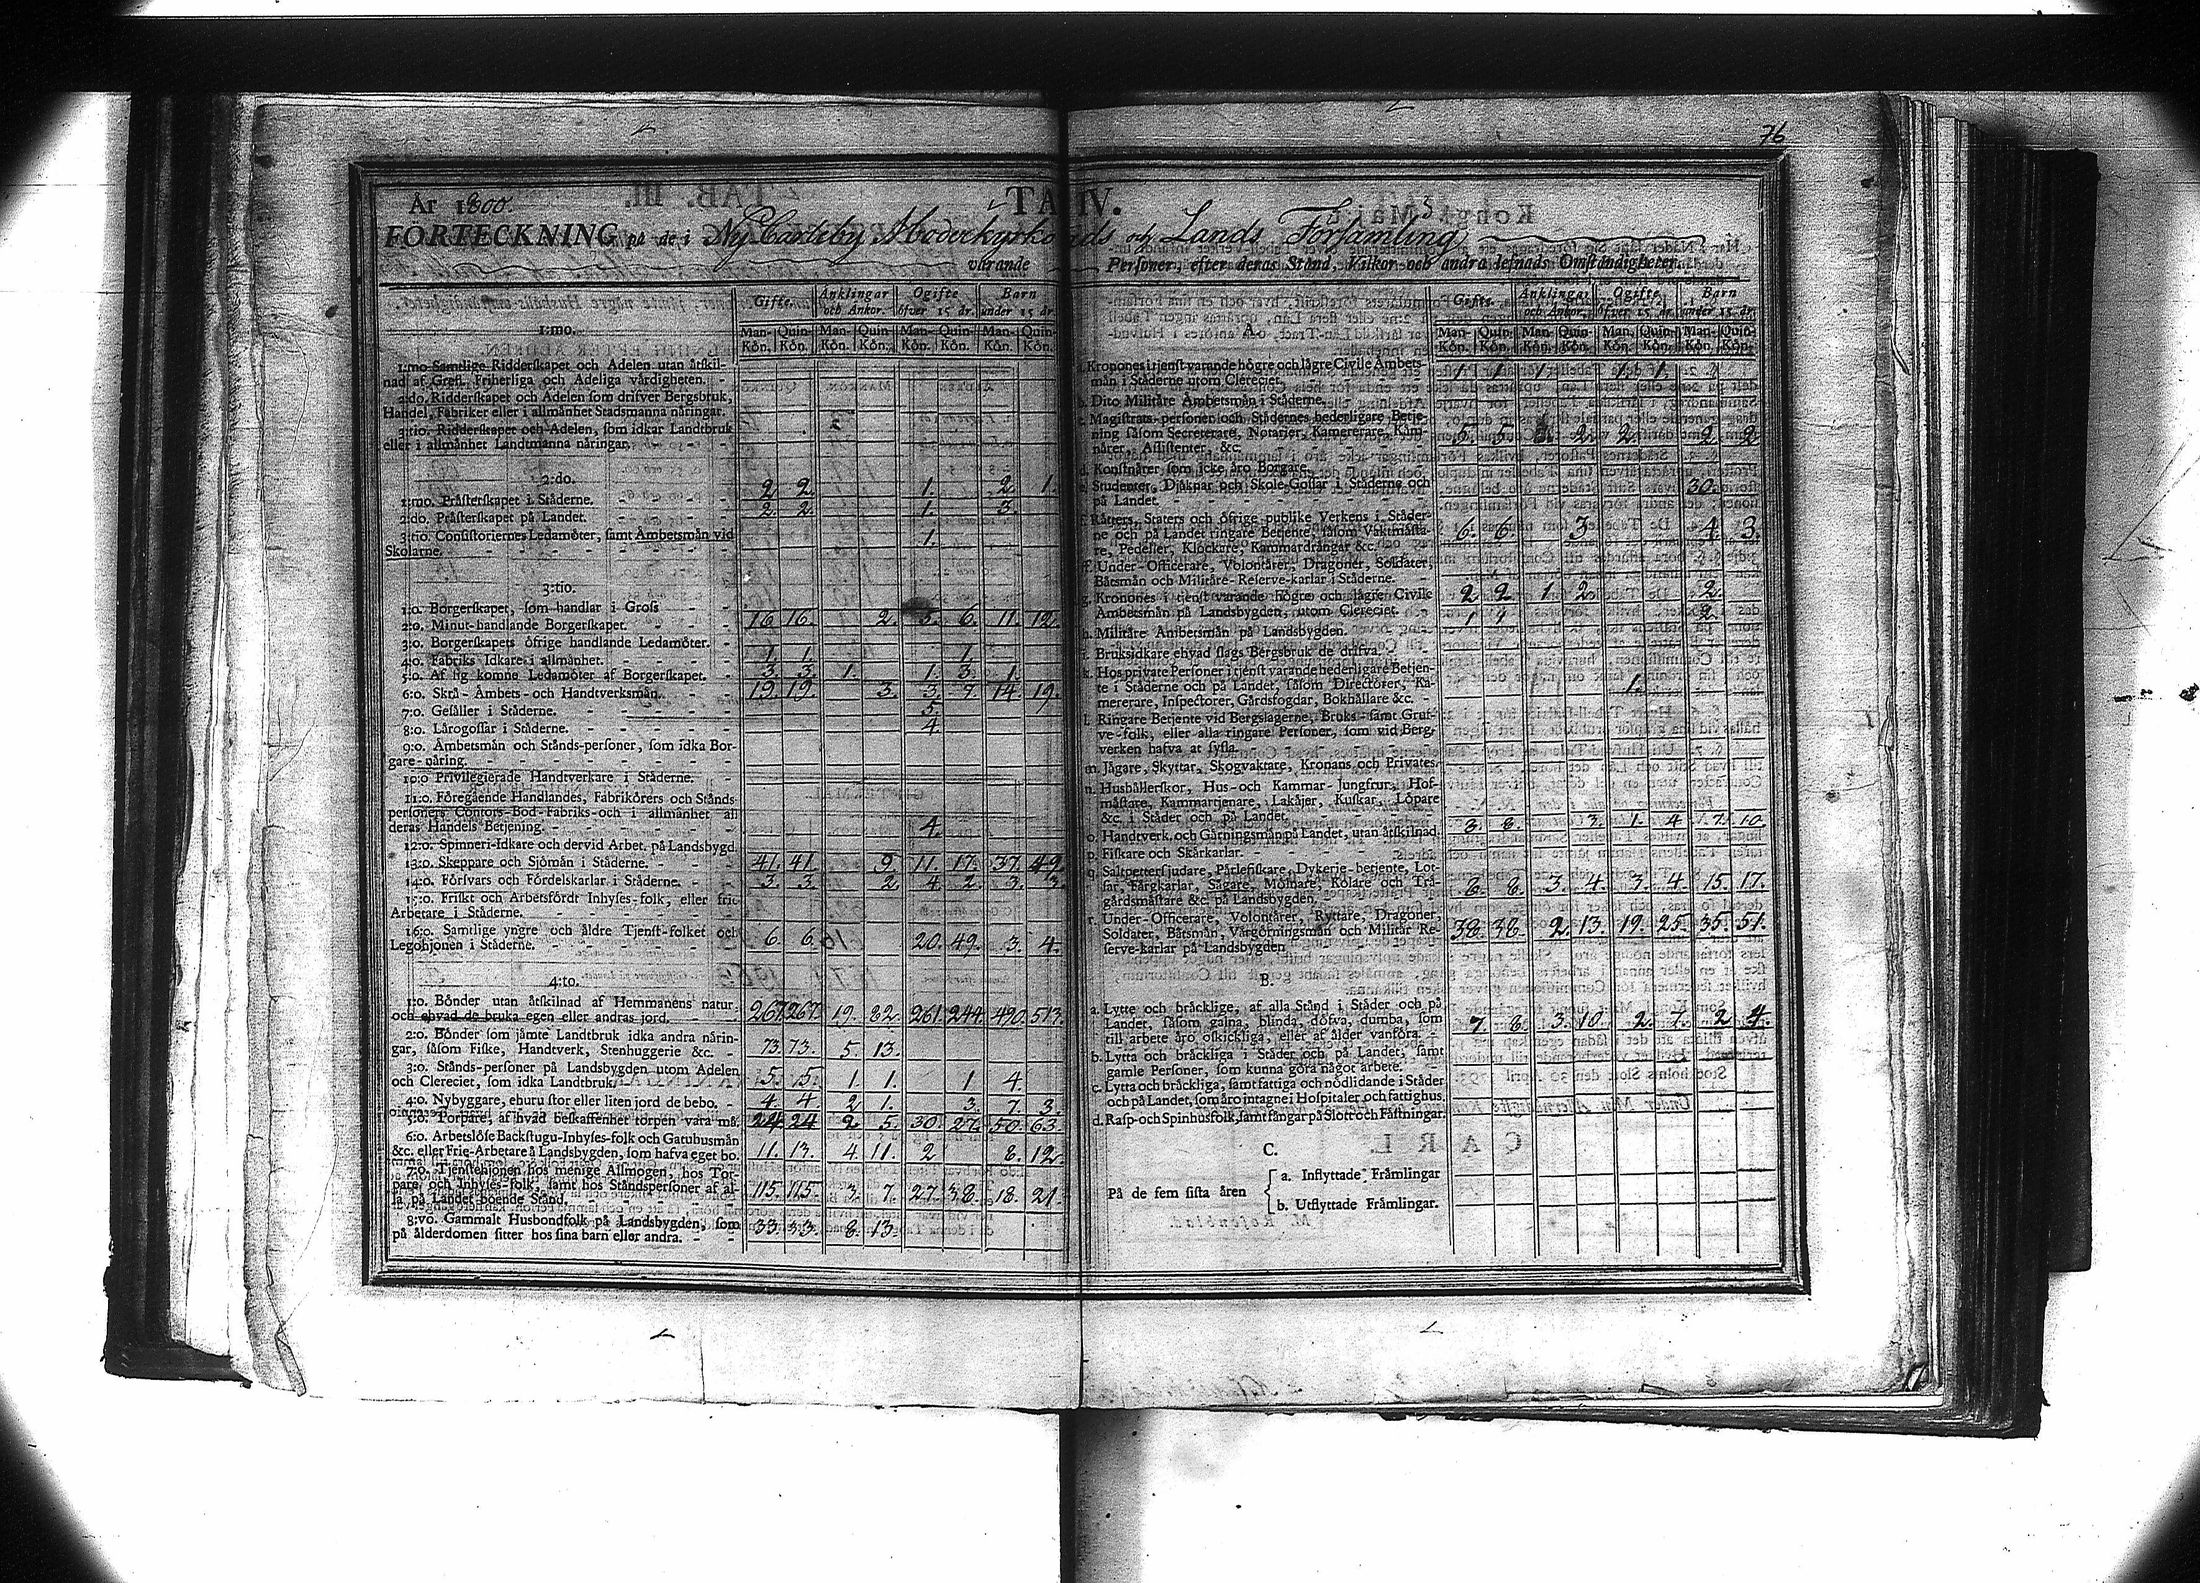 76
År 1800.
TAB. IV.
FÖRTECKNING på de i Ny Carleby Moderkyrko Stads och Lands Församling
varande Personer, efter deras Stånd, Vilkor och andra lefnads Omständigheter.
Gifte. Änklingar och Änkor. Ogifte öfver 15 år. Barn under 15 år.
Man-Kön. Quin-Kön. Man-Kön. Quin-Kön. Man-Kön. Quin-Kön. Man-Kön. Quin-Kön.
1:mo.
1:mo Samtlige Ridderskapet och Adelen utan åtskil-
nad af Grefl. Friherliga och Adeliga värdigheten. -
2:do. Ridderskapet och Adelen som drifver Bergsbruk,
Handel, Fabriker eller i allmänhet Stadsmanna näringar.
3:tio. Ridderskapet och Adelen, som idkar Landtbruk
eller i allmänhet Landtmanna näringar. - - -
2:do.
1:mo. Prästerskapet i Städerne. - - - 2. 2. 1. 2. 1.
2:do. Prästerskapet på Landet. - - - 2. 2. 1. 3.
3:tio. Consistoriernes Ledamöter, samt Ämbetsmän vid
Skolarne. - - - 1.
3:tio.
1:o. Borgerskapet, som handlar i Gross - - -
2:o. Minut-handlande Borgerskapet. - - - 16 16. 2. 3. 6. 11. 12.
3:o. Borgerskapets öfrige handlande Ledamöter. -
4:o. Fabriks Idkare i allmänhet. - - - 1 1. 1
5:o. Af sig komne Ledamöter af Borgerskapet. - 3. 3. 1. 1. 3. 1.
6:o. Skrå-Ämbets-och Handtverksmän. - - 19. 19. 3. 3. 7. 14. 19.
7:o. Gesäller i Städerne. - - - 5.
8:o. Lärogossar i Städerne. - - - 4.
9:o. Ämbetsmän och Stånds-personer, som idka Bor-
gare-näring. - - -
10:o Privilegierade Handtverkare i Städerne. -
11:o. Föregående Handlandes, Fabrikörers och Stånds
personers Contors-Bod-Fabriks-och i allmänhet all
deras Handels Betjening. - - - 4.
12:o. Spinneri-Idkare och dervid Arbet. på Landsbygd.
13:o. Skeppare och Sjömän i Städerne. - - 41. 41. 9. 11. 17. 37. 49.
14:o. Försvars och Fördelskarlar i Städerne. - - 3. 3. 2. 4. 2. 3. 3.
15:o. Friskt och Arbetsfördt Inhyses-folk, eller frie
Arbetare i Städerne. - - -
16:o. Samtlige yngre och äldre Tjenst-folket och
Legohjonen i Städerne. - - - 6. 6. 20. 49. 3. 4.
4:to.
1:o. Bönder utan åtskilnad af Hemmanens natur
och ehvad de bruka egen eller andras jord. - - 267. 267. 19. 82. 261. 244. 490. 513.
2:o. Bönder som jämte Landtbruk idka andra närin-
gar, såsom Fiske, Handtverk, Stenhuggerie &c. - 73. 73. 5. 13.
3:o. Stånds-personer på Landsbygden utom Adelen
och Clereciet, som idka Landtbruk. 5. 5. 1. 1. 1 4.
4:o. Nybyggare, ehuru stor eller liten jord de bebo. - 4. 4 2 1. 3. 7. 3.
5:o. Torpare, af hvad beskaffenhet torpen vara må. 24 24 2 5. 30. 27. 50. 63.
6:o. Arbetslöse Backstugu-Inhyses-folk och Gatuhusmän
&c. eller Frie-Arbetare å Landsbygden, som hafva eget bo. 11. 13. 4. 11. 2 8. 12.
7:o. Tjenstehjonen hos menige Allmogen, hos Tor-
pare, och Inhyses-folk, samt hos Ståndspersoner af al-
la på Landet boende Stånd. - - - 115. 115. 3. 7. 27. 38. 18. 21.
8:vo. Gammalt Husbondfolk på Landsbygden, som
på ålderdomen sitter hos sina barn eller andra. - - 33. 33. 8. 13.
Gifte. Änklingar och Änkor. Ogifte öfver 15 år. Barn under 15 år.
Man-Kön. Quin-Kön. Man-Kön. Quin-Kön. Man. Kön. Quin-Kön. Man-Kön. Quin-Kön.
A.
a. Kronones i tjenst varande högre och lägre Civile Ämbets-
män i Städerne utom Clereciet. 1 1 1 1. 1.
b. Dito Militäre Ämbetsmän i Städerne.
c. Magistrats-personer och Städernes hederligare Betje-
ning såsom Secreterare, Notarier, Kamererare, Käm-
närer, Assistenter, &c. 5. 5. 2. 2. 2. 2
d. Konstnärer som icke äro Borgare.
e. Studenter, Djäknar och Skole-Gossar i Städerne och
på Landet. 30.
f. Rätters, Staters och öfrige publike Verkens i Städer-
ne och på Landet ringare Betjente, såsom Vaktmästa-
re, Pedeller, Klockare, Kammardrängar &c. 6. 6. 3. 4. 3.
ff. Under-Officerare, Volontärer, Dragoner, Soldater,
Båtsmän och Militäre-Reserve-karlar i Städerne. -
g. Kronones i tjenst varande högre och lägre Civile
Ämbetsmän på Landsbygden, utom Clereciet. 2 2. 1. 2. 2.
h. Militäre Ämbetsmän på Landsbygden. 1 1 2.
i. Bruksidkare ehvad slags Bergsbruk de drifva.
k. Hos private Personer i tjenst varande hederligare Betjen-
te i Städerne och på Landet, såsom Directörer, Ka-
mererare, Inspectorer, Gårdsfogdar, Bokhållare &c. - 1.
l. Ringare Betjente vid Bergslagerne, Bruks-samt Gruf-
ve-folk, eller alla ringare Personer, som vid Berg-
verken hafva at sysla.
m. Jägare, Skyttar, Skogvaktare, Kronans och Privates.
n. Hushållerskor, Hus-och Kammar-Jungfrur, Hof-
mästare, Kammartjenare, Lakäjer, Kuskar, Löpare
&c. i Städer och på Landet.
o. Handtverk. och Gärningsmän på Landet, utan åtskilnad. 8. 8. 3. 1. 4 7. 10.
p. Fiskare och Skärkarlar. -
q. Saltpettersjudare, Pärlefiskare, Dykerie-betjente, Lot-
sar, Färgkarlar, Sågare, Mölnare, Kolare och Trä-
gårdsmästare &c. på Landsbygden. 8. 8. 3. 4. 3. 4. 15. 17.
r. Under-Officerare, Volontärer, Ryttare, Dragoner,
Soldater, Båtsmän, Värgörningsmän och Militär Re-
serve-karlar på Landsbygden 38. 38. 2. 13. 19. 25. 35. 51.
B.
a. Lytte och bräcklige, af alla Stånd i Städer och på
Landet, såsom galna, blinda, döfva, dumba, som
till arbete äro oskickliga, eller af ålder vanföra. - 7. 8. 3. 10. 2. 7. 2 4.
b. Lytta och bräckliga i Städer och på Landet, samt
gamle Personer, som kunna göra något arbete.
c. Lytta och bräckliga, samt fattiga och nödlidande i Städer
och på Landet, som äro intagne i Hospitaler och fattighus.
d. Rasp-och Spinhusfolk, samt fångar på Slott och Fästningar.
C.
På de fem sista åren
a. Inflyttade Främlingar
b. Utflyttade Främlingar.